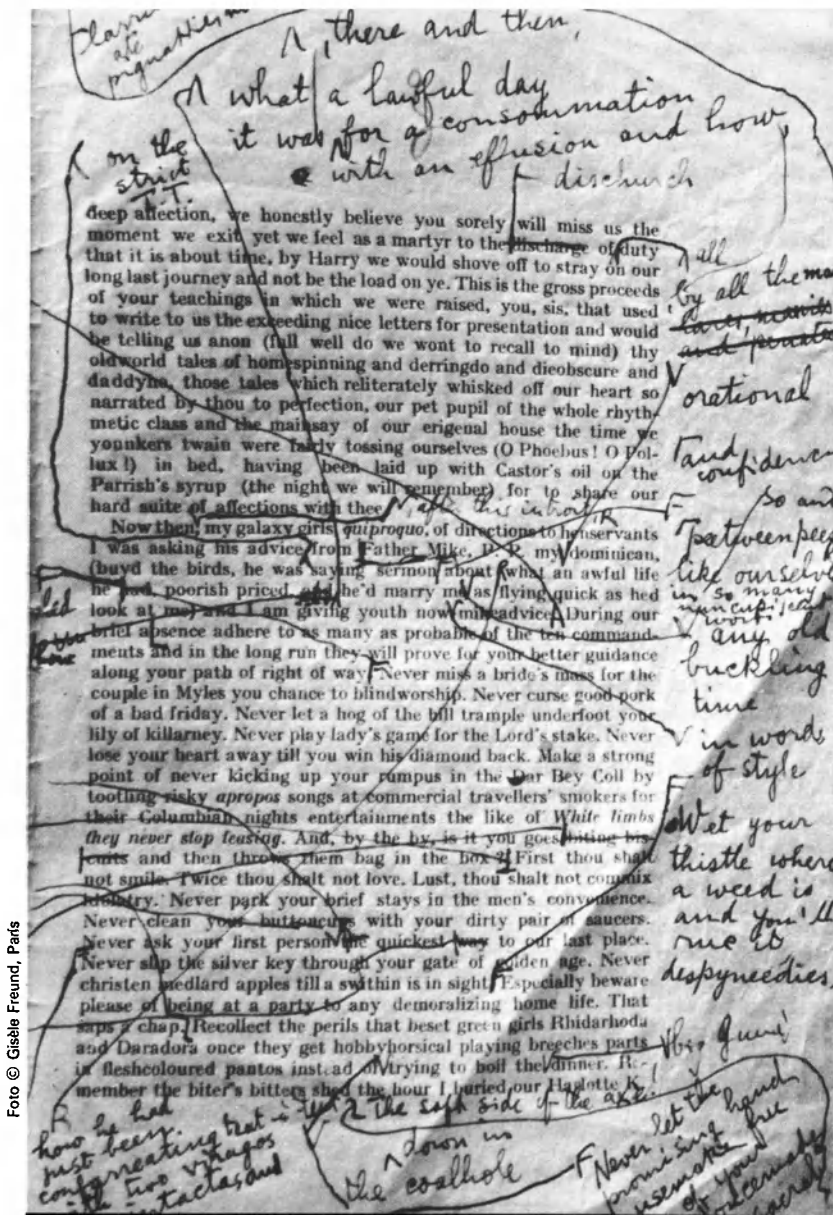 Classic
ate
, there and then,
what a lawful day
it was for a consommation
with an effusion and how
on the
strict
T.T.
dischurch
deep affection, we honestly believe you sorely will miss us the
moment we exit yet we feel as a martyr to the discharge of duty
that it is about time, by Harry we would shove off to stray on our
long last journey and not be the load on ye. This is the gross proceeds
of your teachings in which we were raised, you, sis, that used
to write to us the exceeding nice letters for presentation and would
be telling us anon (full well do we wont to recall to mind) thy
oldworld tales of homespinning and derringdo and dieobscure and
daddyho, those tales which reliterately whisked off our heart so
narrated by thou to perfection, our pet pupil of the whole rhyth-
metic class and the mainsay of our erigenal house the time we
younkers twain were fairly tossing ourselves (O Phoebus! O Pol-
lux!) in bed, having been laid up with Castor's oil on the
Parrish's syrup (the night we will remember) for to share our
hard suite of affections with thee.
, after this introit,
Now then, my galaxy girls, quiproquo, of directions to henservants
I was asking his advice from Father Mike, P. P. my dominican,
(buyd the birds, he was saying sermon about what an awful life
he had, poorish priced, he'd marry me as flying quick as hed
look at me) and I am giving youth now mis advice. During our
brief absence adhere to as many as probable of the ten command-
ments and in the long run they will prove for your better guidance
along your path of right of way. Never miss a bride's mass for the
couple in Myles you chance to blindworship. Never curse good pork
of a bad friday. Never let a hog of the hill trample underfoot your
lily of killarney. Never play lady's game for the Lord's stake. Never
lose your heart away till you win his diamond back. Make a strong
point of never kicking up your rumpus in the Dar Bey Coll by
tootling risky apropos songs at commercial travellers' smokers for
their Columbian nights entertainments the like of White limbs
they never stop teasing. And, by the by, is it you goes biting bis-
cuits and then throws them bag in the box? First thou shalt
not smile. Twice thou shalt not love. Lust, thou shalt not commix
idolatry. Never park your brief stays in the men's convenience.
Never clean your buttoncups with your dirty pair of saucers.
Never ask your first person the quickest way to our last place.
Never slip the silver key through your gate of golden age. Never
christen medlard apples till a swithin is in sight. Especially beware
please of being at a party to any demoralizing home life. That
saps a chap. Recollect the perils that beset green girls Rhidarhoda
and Daradora once they get hobbyhorsical playing breeches parts
in fleshcoloured pantos instead of trying to boil the dinner. R-
member the biter's bitters shed the hour I buried our Harlotte K
all
by all the
orational
and
confidence
so and
patweenpee
like ourselve
in so many
words
any old
buckling
time
in words
of style
Wet your
thistle where
a weed is
and you'll
rue it
despyneedies
how he had
just been
confarreating
with two viragos
The soft side of the axe.
down in
the coalhole
Never let the
promising hand
usemake free
of your
Foto © Gisèle Freund, París